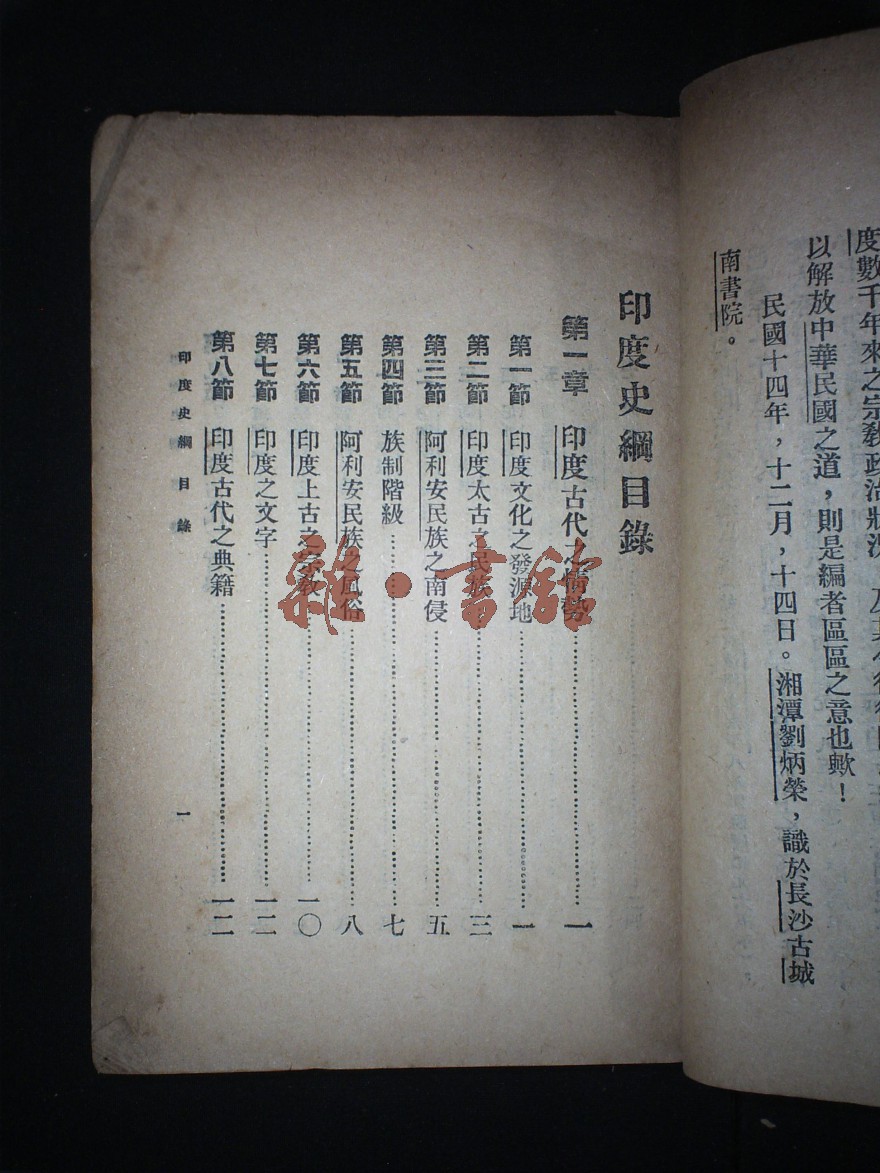 度數千年來之宗教政治狀況
以解放中華民國之道，則是編者區區之意也歟！
民國十四年，十二月，十四日。湘潭劉炳榮，識於長沙古城
南書院。
印度史綱目錄
第一章　印度古代之情勢……一
第一節　印度文化之發源地……一
第二節　印度太古之民族……三
第三節　阿利安民族之南侵……五
第四節　族制階級……七
第五節　阿利安民族之風俗……八
第六節　印度上古之宗教……一〇
第七節　印度之文字……一二
第八節　印度古代之典籍……一二
印度史綱目錄
一
雜·書館